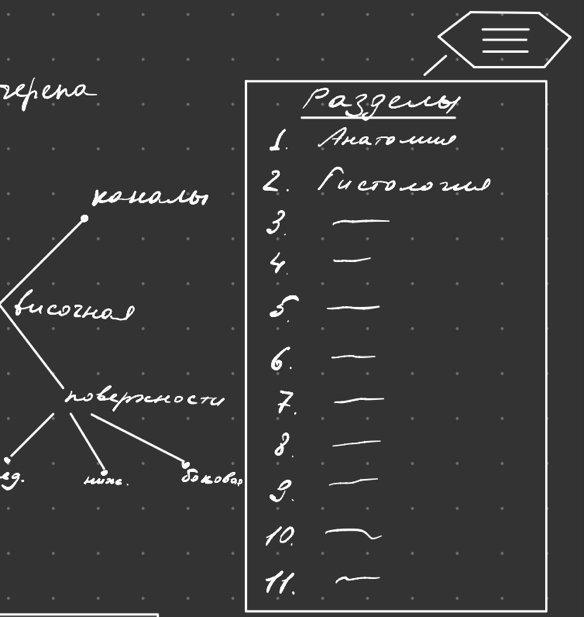 черепа
каналы
височная
поверхности
ед.
ниж.
боковая
Разделы
1. Анатомия
2. Гистология
3. —
4. —
5. —
6. —
7. —
8. —
9. —
10. —
11. —